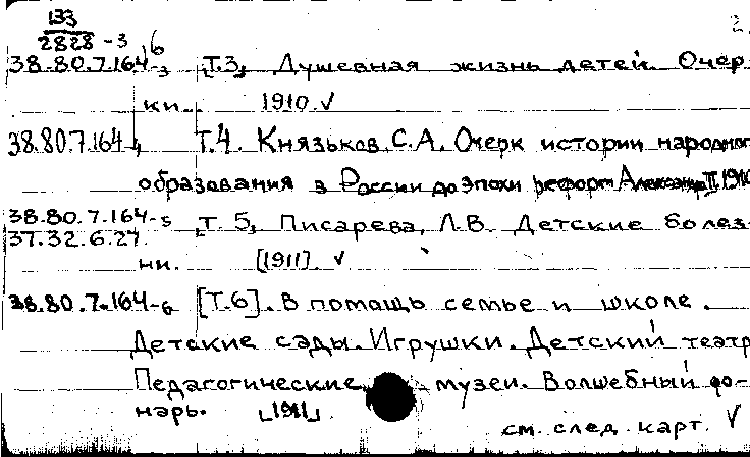 133
2828-3
38.80.7.164-3 Т.3, Душевная жизнь детей. Очер-
ки. 1910. ✓
38.80.7.164-4 Т.4. Князьков, С.А. Очерк истории народног
образования в России до эпохи реформ Александ II. 1910
38.80.7.164-5 Т. 5, Писарева, Л.В. Детские болез-
37.32.6.27.
ни. [1911]. ✓
38.80.7.164-6 [Т.6]. В помощь семье и школе.
Детские сады. Игрушки. Детский театр
Педагогические музеи. Волшебный фо-
нарь. [1911].
см. след. карт. ✓